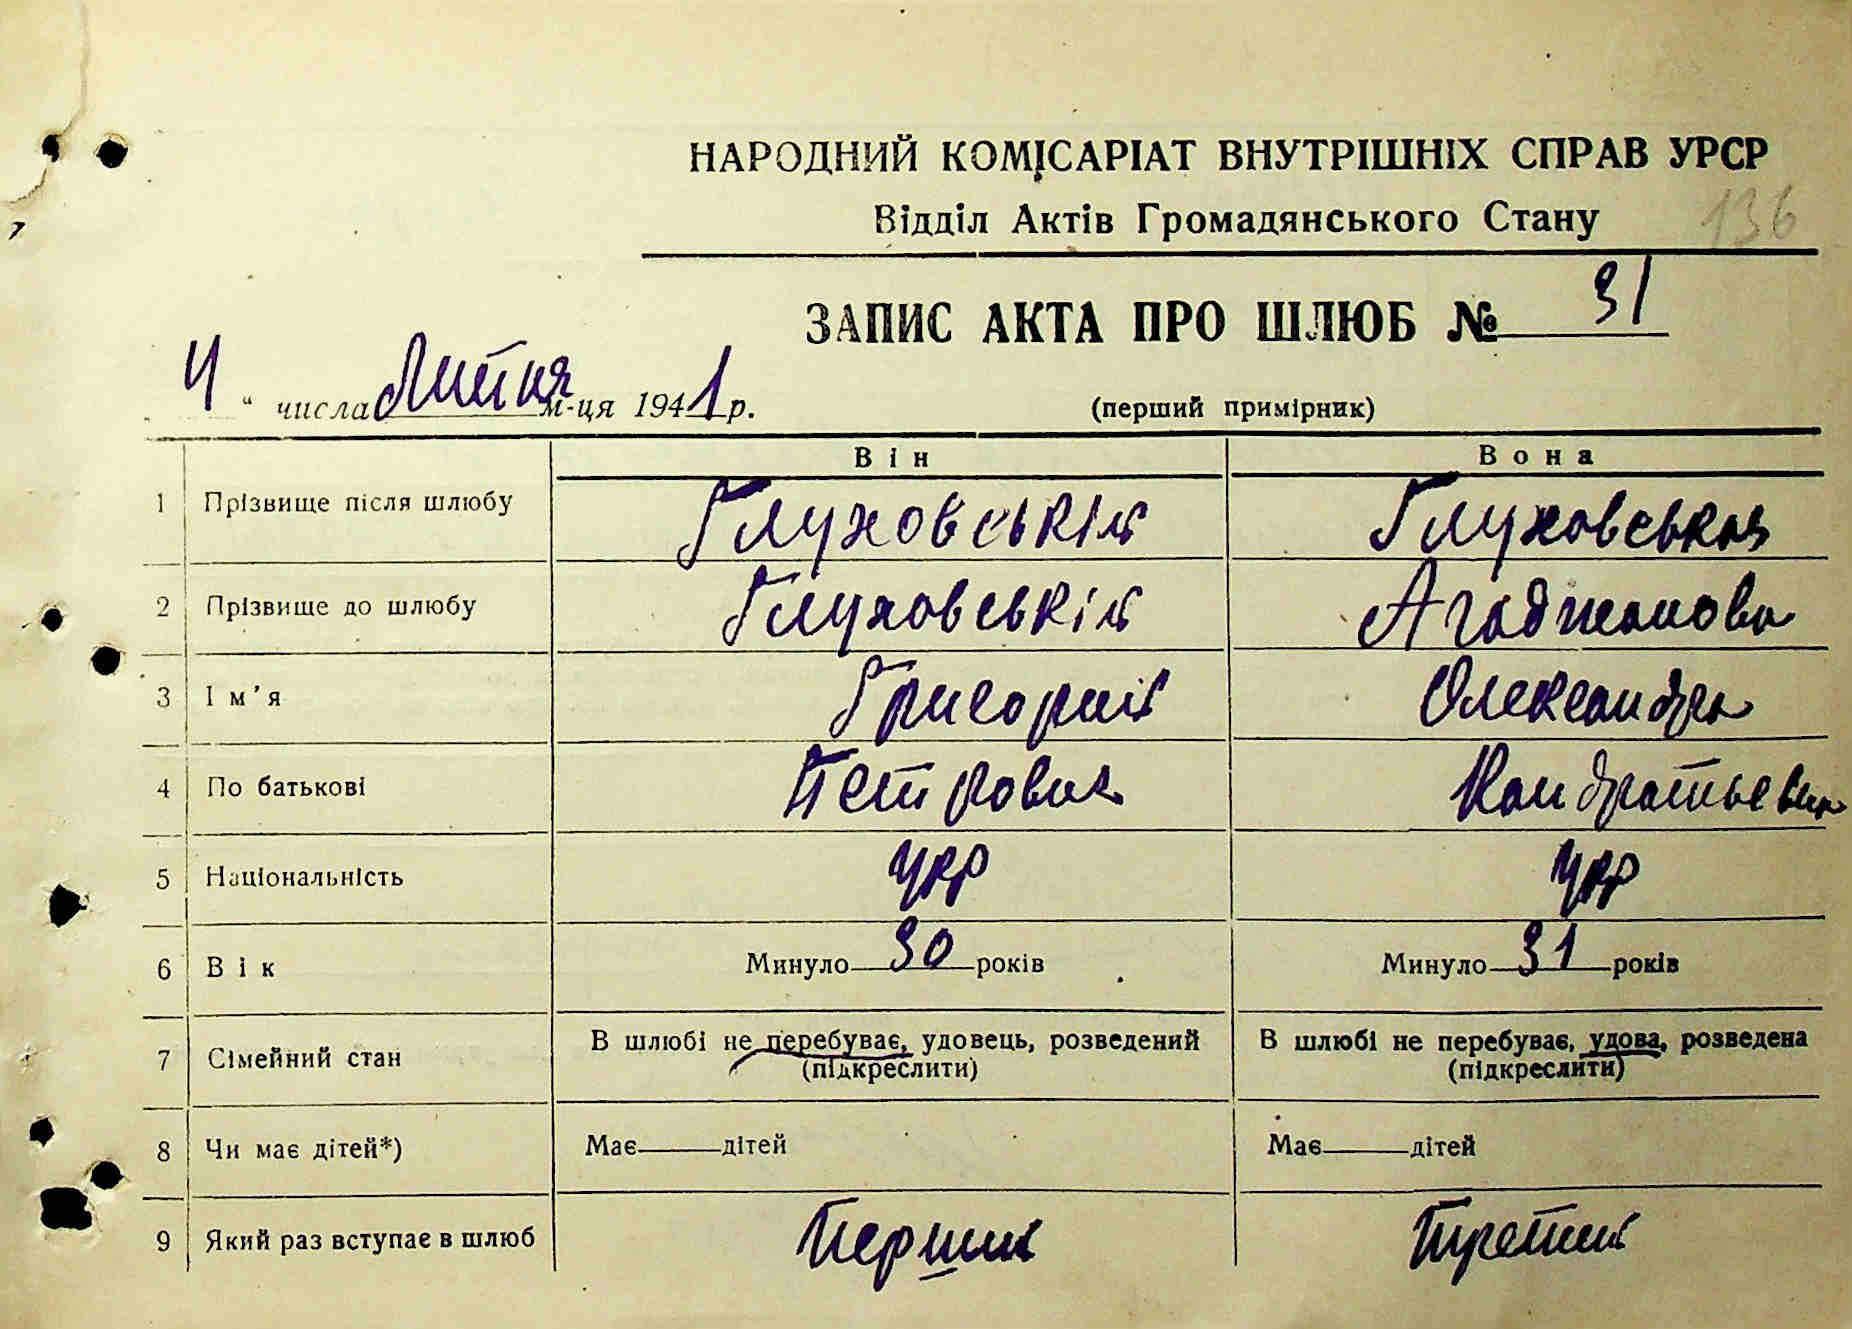 НАРОДНИЙ КОМІСАРІАТ ВНУТРІШНІХ СПРАВ УРСР
Відділ Актів Громадянського Стану
136
ЗАПИС АКТА ПРО ШЛЮБ № 31
4 " числа Липня м-ця 1941 р.
(перший примірник)
Він Вона
1 Прізвище після шлюбу Глуховській Глуховська
2 Прізвище до шлюбу Глуховській Агаджанова
3 Ім'я Григорий Олександра
4 По батькові Петрович Кандратьевна
5 Національність Укр Укр
6 Вік Минуло 30 років Минуло 31 років
7 Сімейний стан В шлюбі не перебуває, удовець, розведений (підкреслити) В шлюбі не перебуває, удова, розведена (підкреслити)
8 Чи має дітей*) Має дітей Має дітей
9 Який раз вступає в шлюб Перший Третий